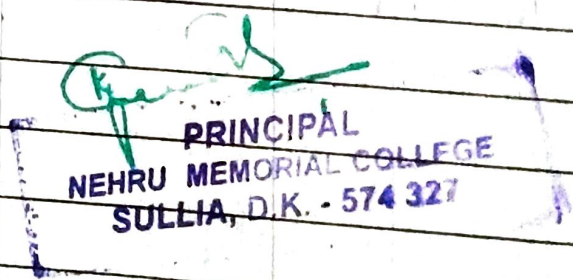 PRINCIPAL
NEHRU MEMORIAL COLLEGE
SULLIA, D.K. - 574 327